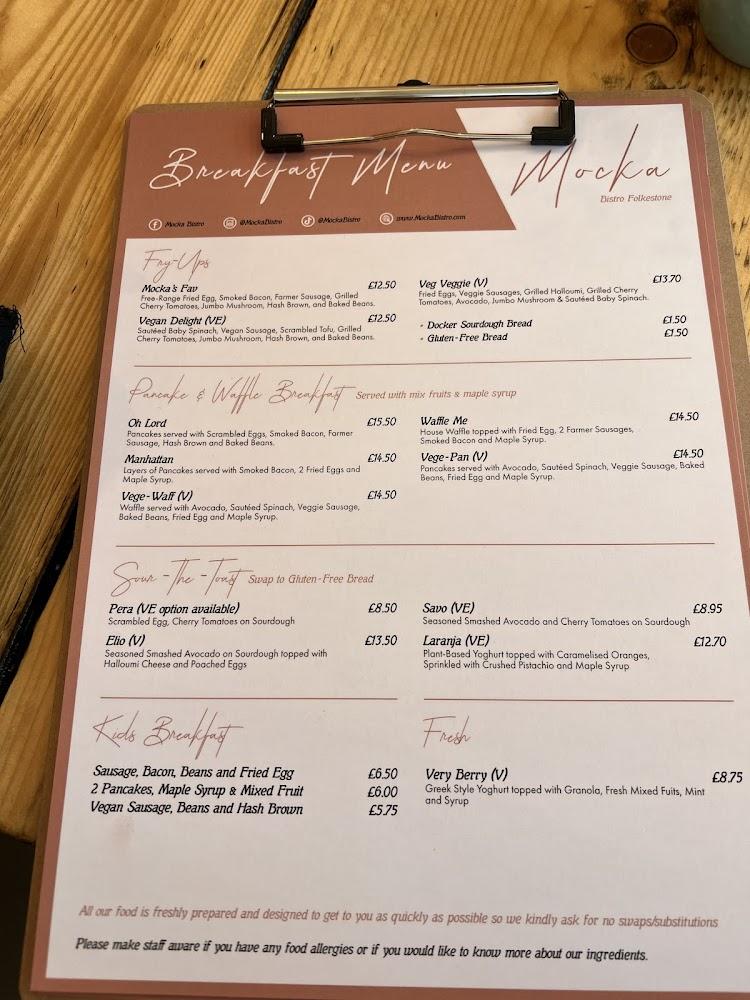 Breakfast Menu
Mocka
Bistro Folkestone
Mocka Bistro @MockaBistro @MockaBistro www.MockaBistro.com
Fry-Ups
Mocka's Fav £12.50
Free-Range Fried Egg, Smoked Bacon, Farmer Sausage, Grilled
Cherry Tomatoes, Jumbo Mushroom, Hash Brown, and Baked Beans.
Vegan Delight (VE) £12.50
Sautéed Baby Spinach, Vegan Sausage, Scrambled Tofu, Grilled
Cherry Tomatoes, Jumbo Mushroom, Hash Brown, and Baked Beans.
Veg Veggie (V) £13.70
Fried Eggs, Veggie Sausages, Grilled Halloumi, Grilled Cherry
Tomatoes, Avocado, Jumbo Mushroom & Sautéed Baby Spinach.
• Docker Sourdough Bread £1.50
• Gluten-Free Bread £1.50
Pancake & Waffle Breakfast Served with mix fruits & maple syrup
Oh Lord £15.50
Pancakes served with Scrambled Eggs, Smoked Bacon, Farmer
Sausage, Hash Brown and Baked Beans.
Manhattan £14.50
Layers of Pancakes served with Smoked Bacon, 2 Fried Eggs and
Maple Syrup.
Vege-Waff (V) £14.50
Waffle served with Avocado, Sautéed Spinach, Veggie Sausage,
Baked Beans, Fried Egg and Maple Syrup.
Waffle Me £14.50
House Waffle topped with Fried Egg, 2 Farmer Sausages,
Smoked Bacon and Maple Syrup.
Vege-Pan (V) £14.50
Pancakes served with Avocado, Sautéed Spinach, Veggie Sausage, Baked
Beans, Fried Egg and Maple Syrup.
Sour-The-Toast Swap to Gluten-Free Bread
Pera (VE option available) £8.50
Scrambled Egg, Cherry Tomatoes on Sourdough
Elio (V) £13.50
Seasoned Smashed Avocado on Sourdough topped with
Halloumi Cheese and Poached Eggs
Savo (VE) £8.95
Seasoned Smashed Avocado and Cherry Tomatoes on Sourdough
Laranja (VE) £12.70
Plant-Based Yoghurt topped with Caramelised Oranges,
Sprinkled with Crushed Pistachio and Maple Syrup
Kids Breakfast
Sausage, Bacon, Beans and Fried Egg £6.50
2 Pancakes, Maple Syrup & Mixed Fruit £6.00
Vegan Sausage, Beans and Hash Brown £5.75
Fresh
Very Berry (V) £8.75
Greek Style Yoghurt topped with Granola, Fresh Mixed Fuits, Mint
and Syrup
All our food is freshly prepared and designed to get to you as quickly as possible so we kindly ask for no swaps/substitutions
Please make staff aware if you have any food allergies or if you would like to know more about our ingredients.